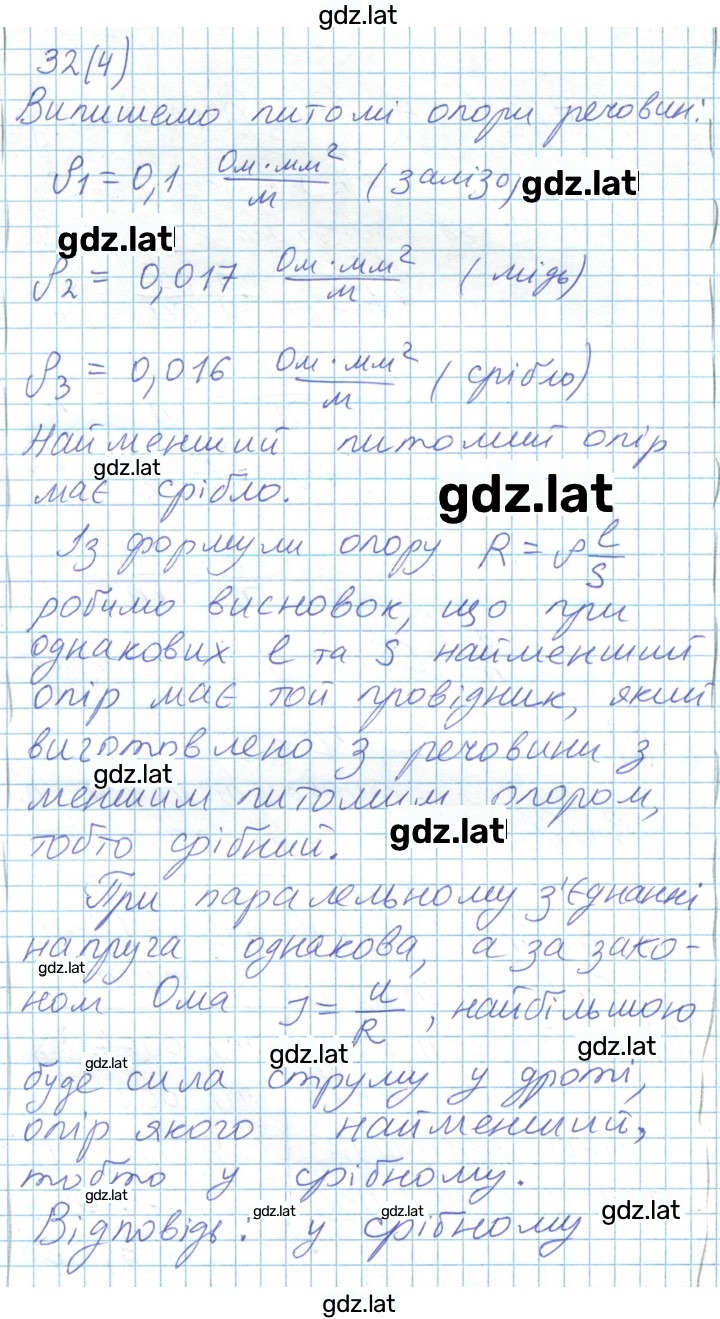 gdz.lat
32(4)
Випишемо питомі опори речовин:
ρ1 = 0,1 Ом·мм²/м (залізо)
gdz.lat
gdz.lat
ρ2 = 0,017 Ом·мм²/м (мідь)
ρ3 = 0,016 Ом·мм²/м (срібло)
Найменший питомий опір
gdz.lat
має срібло.
gdz.lat
Із формули опору R = ρ l/S
робимо висновок, що при
однакових l та S найменший
опір має той провідник, який
виготовлено з речовини з
gdz.lat
меншим питомим опором,
gdz.lat
тобто срібний.
При паралельному з'єднанні
напруга однакова, а за зако-
gdz.lat
ном Ома I = U/R, найбільшою
gdz.lat gdz.lat gdz.lat
буде сила струму у дроті,
опір якого найменший,
тобто у срібному.
gdz.lat gdz.lat gdz.lat gdz.lat
Відповідь: у срібному
gdz.lat